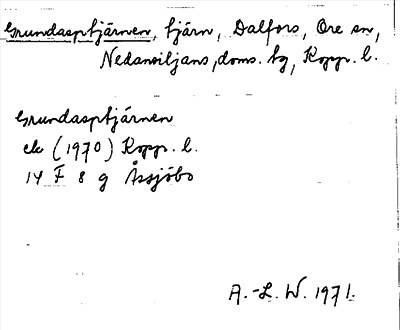 Grundasptjärnen, tjärn, Dalfors, Ore sn,
Nedansiljans doms. tg, Kopp. l.
Grundasptjärnen
ek (1970) Kopp. l.
14 F 8 g Åssjöbo
A.-L. W. 1971.